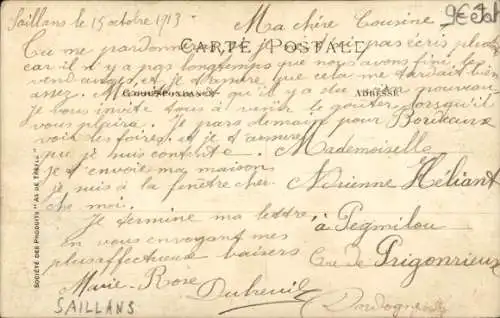 Saillans le 15 octobre 1913
9€
Ma chère Cousine
CARTE POSTALE
Tu me pardonneras si je ne t'ai pas écris plutot
car il n'y a pas longtemps que nous avons fini les
vendanges, et je t'assure que cela me tardait bien
assez. qu'il y a du nouveau
CORRESPONDANCE
ADRESSE
Je vous invite tous à venir le goûter lorsqu'il
vous plaira. Je pars demain pour Bordeaux
voir les foires, et je t'assure
que je suis contente.
je t'envoie ma maison
je suis à la fenêtre chez
che moi.
Je termine ma lettre
en vous envoyant mes
plus affectueux baisers
Marie-Rose Dubreuil
Mademoiselle
Adrienne Héliant
à Pegmilou
Cne de Prigonrieux
Dordogne
SAILLANS
SOCIÉTÉ DES PRODUITS "AS DE TRÈFLE"